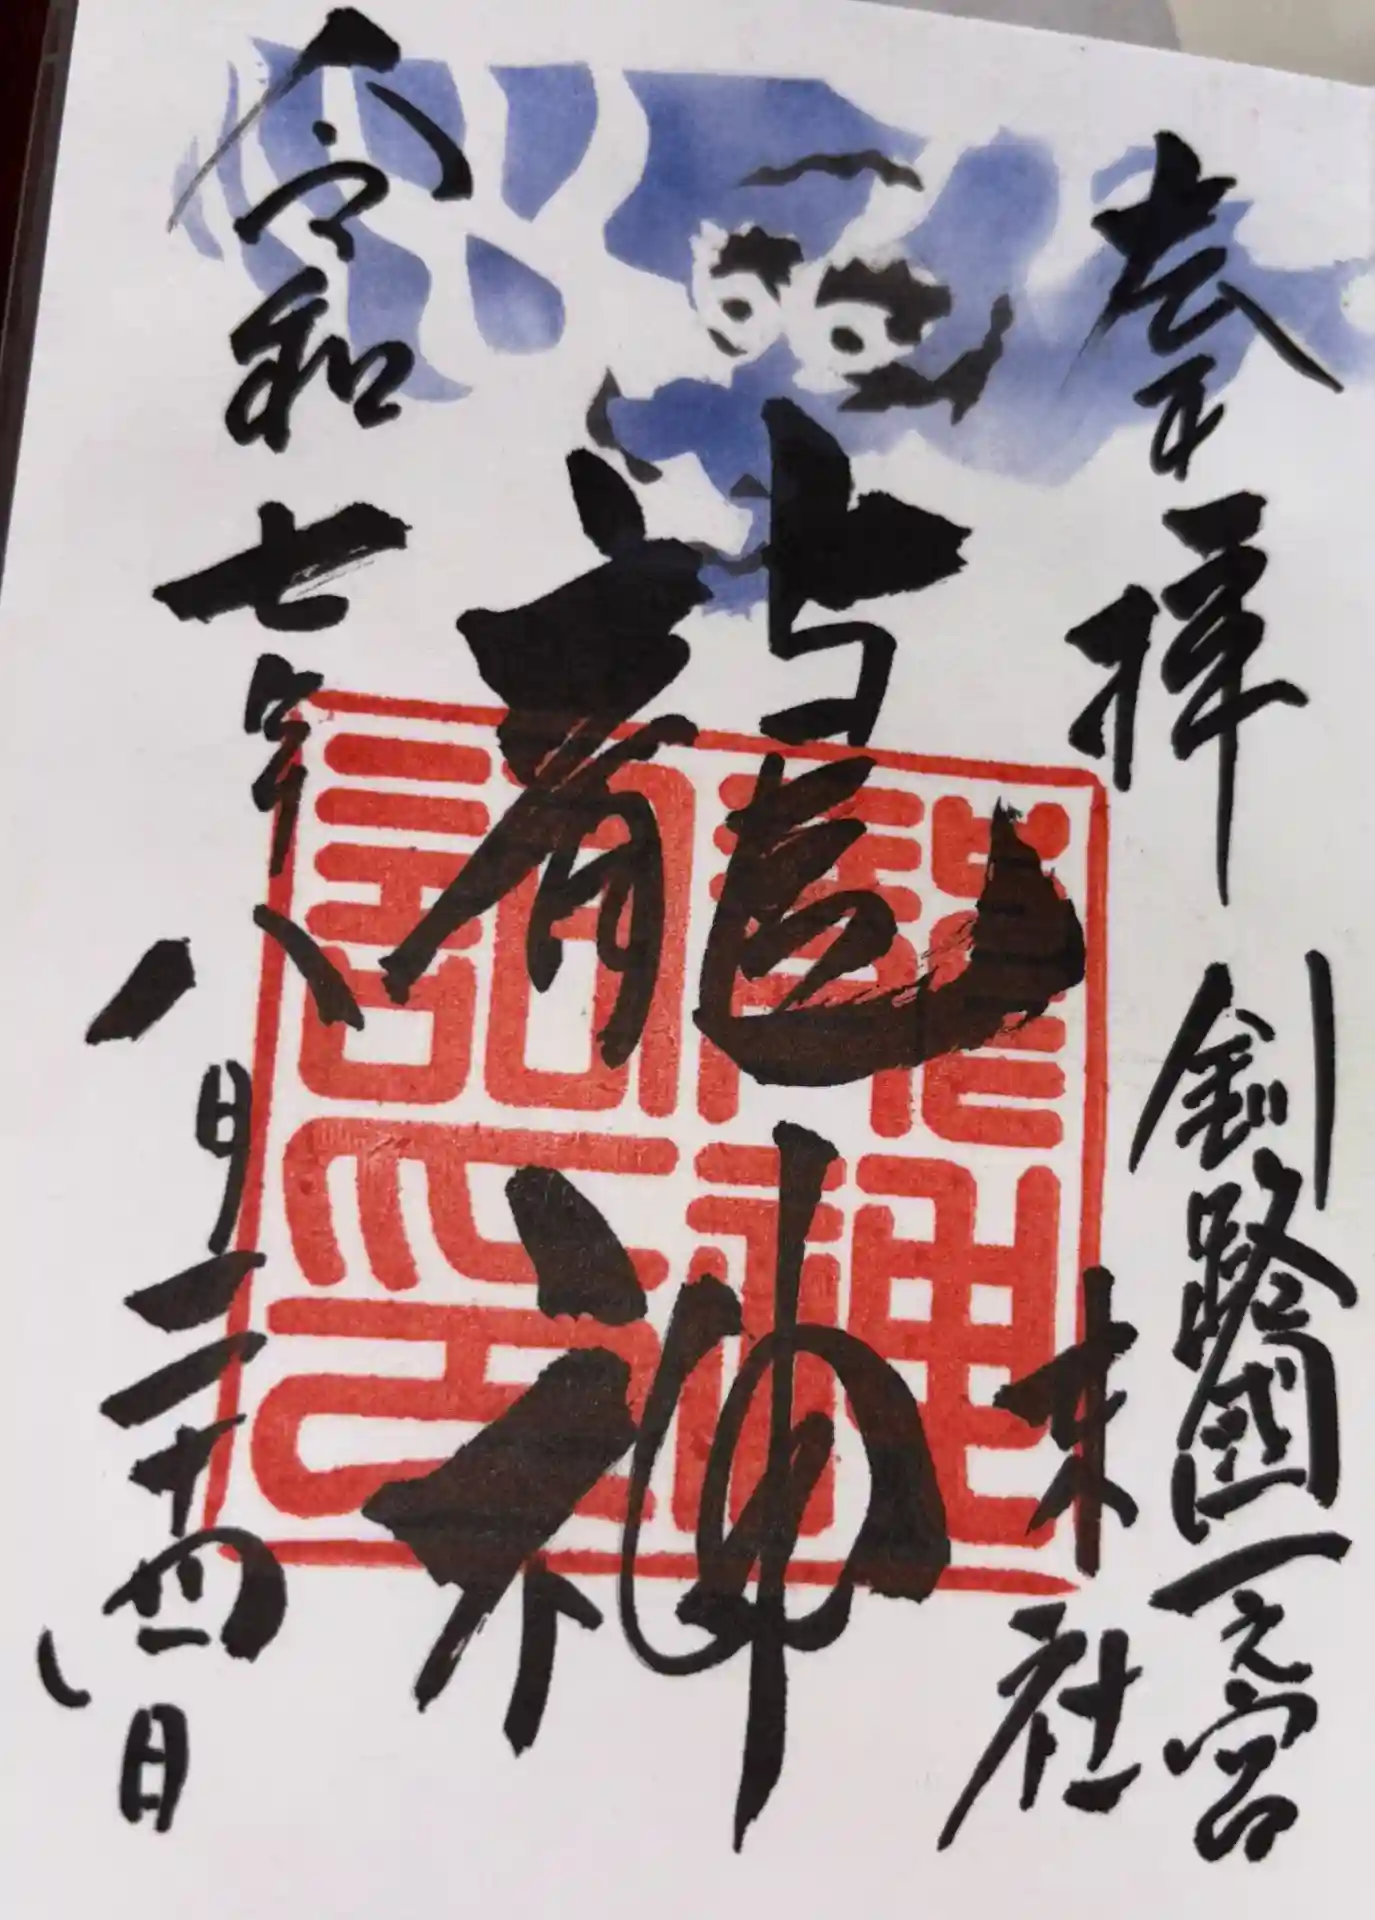 奉拝
釧路國一之宮
末社
龍神
令和七年八月二十四日
龍神